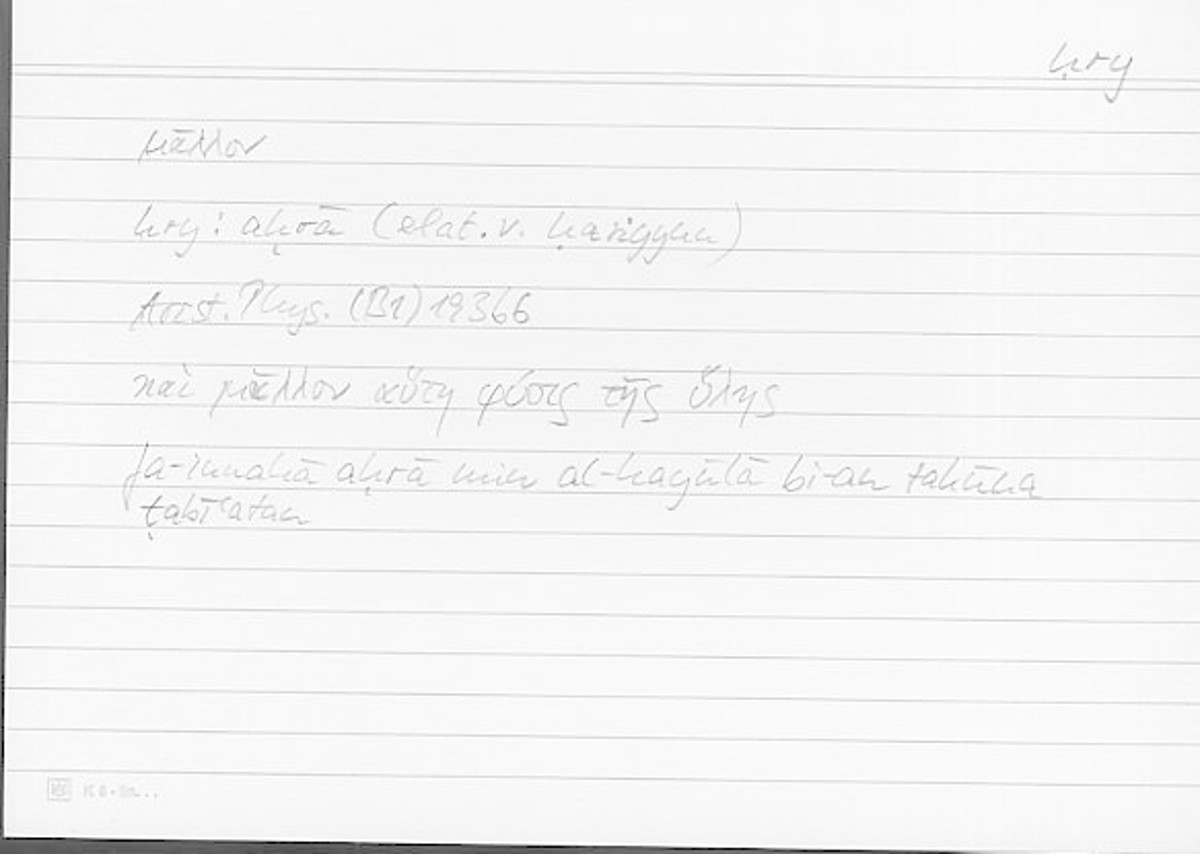 ḥry
μᾶλλον
ḥry: aḥrā (elat. v. ḥariyyun)
Arist. Phys. (B1) 193b6
καὶ μᾶλλον αὕτη φύσις τῆς ὕλης
fa-innahā aḥrā min al-hayūlā bi-an takūna
ṭabīʿatan